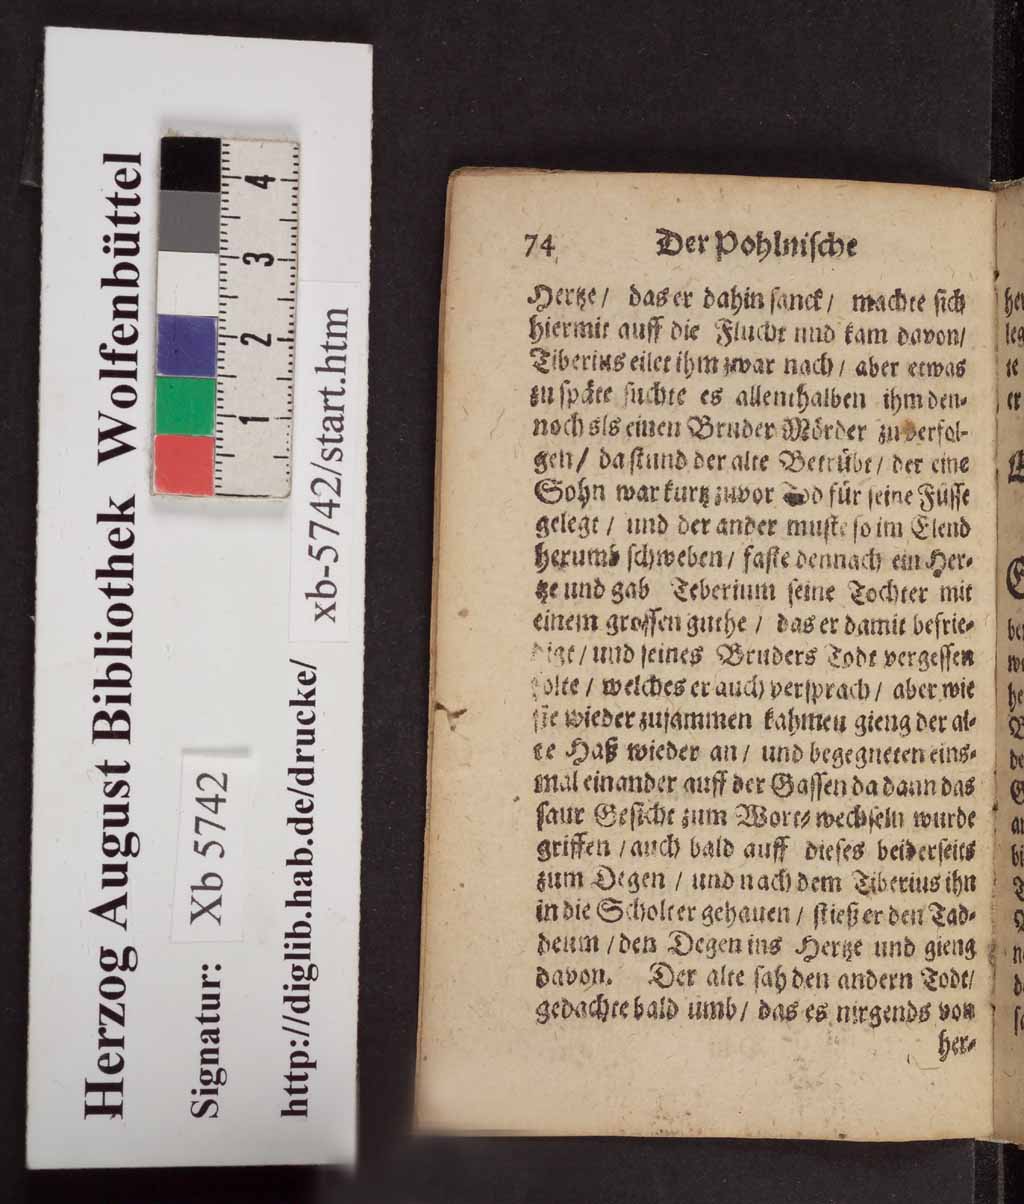 Herzog August Bibliothek Wolfenbüttel
Signatur: Xb 5742
http://diglib.hab.de/drucke/ xb-5742/start.htm
1 2 3 4
74 Der Pohlnische
Hertze / das er dahin sanck / machte sich
hiermit auff die Flucht und kam davon/
Tiberius eilet ihm zwar nach / aber etwas
zu späte suchte es allenthalben ihm den-
noch als einen Bruder Mörder zu verfol-
gen / da stund der alte Betrübt / der eine
Sohn war kurtz zuvor Tod für seine Füsse
gelegt / und der ander muste so im Elend
herumb schweben / faste dennach ein Her-
tze und gab Teberium seine Tochter mit
einem grossen guthe / das er damit befrie-
digt / und seines Bruders Todt vergessen
solte / welches er auch versprach / aber wie
sie wieder zusammen kahmen gieng der al-
te Haß wieder an / und begegneten eins-
mal einander auff der Gassen da dann das
saur Gesicht zum Wort-wechseln wurde
griffen / auch bald auff dieses beiderseits
zum Degen / und nach dem Tiberius ihn
in die Scholter gehauen / stieß er den Tad-
deum / den Degen ins Hertze und gieng
davon. Der alte sah den andern Todt/
gedachte bald umb / das es nirgends von
her-